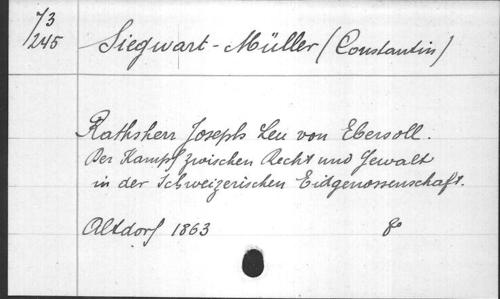 73
245
Siegwart-Müller (Constantin)
Rathsherr Joseph Leu von Ebersoll.
Der Kampf zwischen Recht und Gewalt
in der Schweizerischen Eidgenossenschaft.
Altdorf 1863 8o